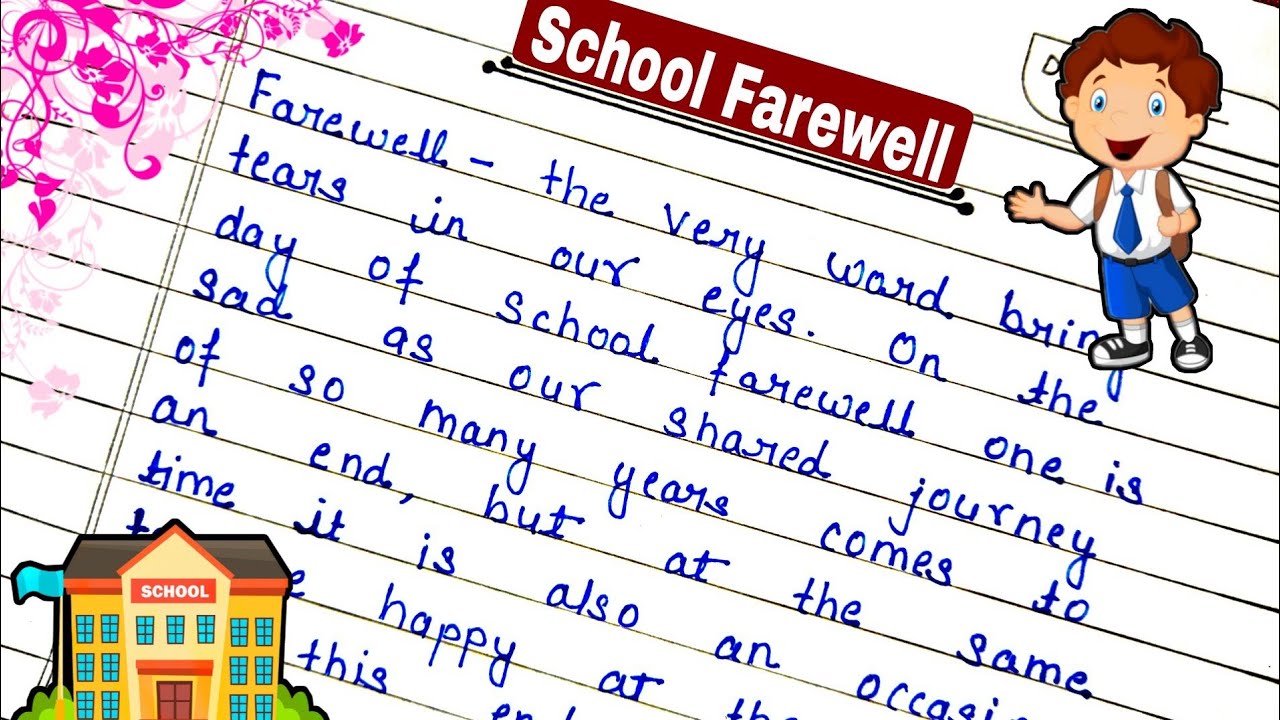 School Farewell
Farewell - the very word bring
tears in our eyes. On the
day of school farewell one is
sad as our shared journey
of so many years comes to
an end, but at the same
time it is also an occasi
happy at the
this end
SCHOOL